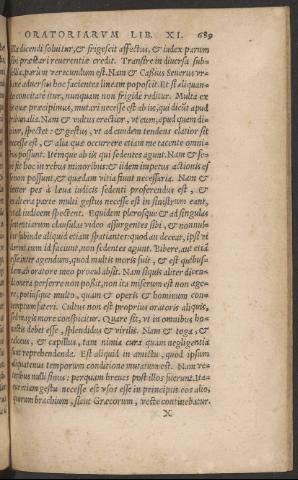 ORATORIARVM LIB. XI. 689
illa dicendi soluitur, & frigescit affectui, & iudex parum
sibi præstari reuerentiæ credit. Transire in diuersa sub-
sellia, parum verecundum est. Nam & Cassius Seuerus vr-
bane aduersus hoc facientes lineam poposcit. Et si aliquan-
do concitatè itur, nunquam non frigidè reditur. Multa ex
iis quæ præcipimus, mutari necesse est ab iis, qui dicūt apud
tribunalia. Nam & vultus erectior, vt eum, apud quem di-
citur, spectet: & gestus, vt ad eundem tendens elatior sit
necesse est, & alia quæ occurrere etiam me tacente omni-
bus possunt. Itémque ab iis qui sedentes agunt. Nam & fe-
rè fit hoc in rebus minoribus: & iidem impetus actionis es-
se non possunt, & quædam vitia fiunt necessaria. Nam &
dexter pes à læua iudicis sedenti proferendus est, &
ex altera parte multi gestus necesse est in sinistrum eant,
vt ad iudicem spectent. Equidem plerosque & ad singulas
sententiarum clausulas video assurgentes sibi, & nonnul-
los subinde aliquid etiam spatiantes: quod an deceat, ipsi vi-
derint: cum id faciunt, non sedentes agunt. Bibere, aut etiā
esse inter agendum, quod multis moris fuit, & est quibus-
dam ab oratore meo procul absit. Nam si quis aliter dicen-
di onera perferre non possit, non ita miserum est non age-
re, potiúsque multo, quàm & operis & hominum con-
temptum fateri. Cultus non est proprius oratoris aliquis,
sed magis in oratore conspicitur. Quare sit, vt in omnibus ho-
nestis debet esse, splendidus & virilis. Nam & toga, &
calceus, & capillus, tam nimia cura quàm negligentia
sunt reprehendenda. Est aliquid in amictu, quod ipsum
aliquatenus temporum conditione mutatum est. Nam ve-
teribus nulli sinus: perquam breues post illos fuerunt. Ita-
que etiam gestu necesse est vsos esse in principiis eos alio,
quorum brachium, sicut Græcorum, veste continebatur.
X